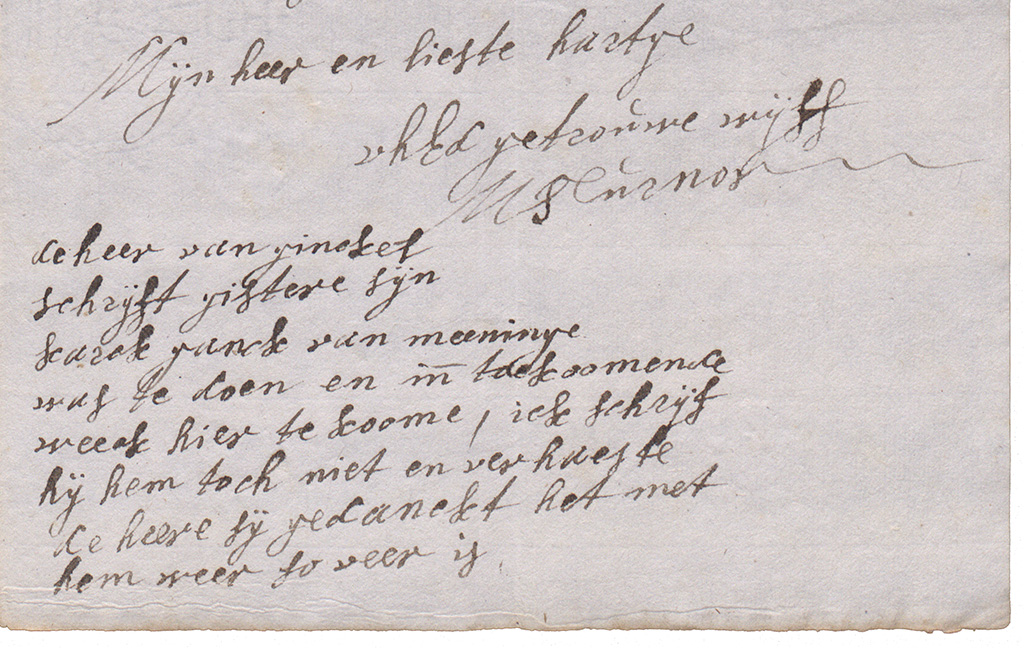 Mijn heer en lieste hartge
uhEd getrouwe wijff
M Turnor
de heer van ginckel
schrijft gistere sijn
karck ganck van meeninge
was te doen en in toekoomende
weeck hier te koome, ick schrijf
hij hem toch niet en verhaeste
de heere sij gedanckt het met
hem weer so veer is